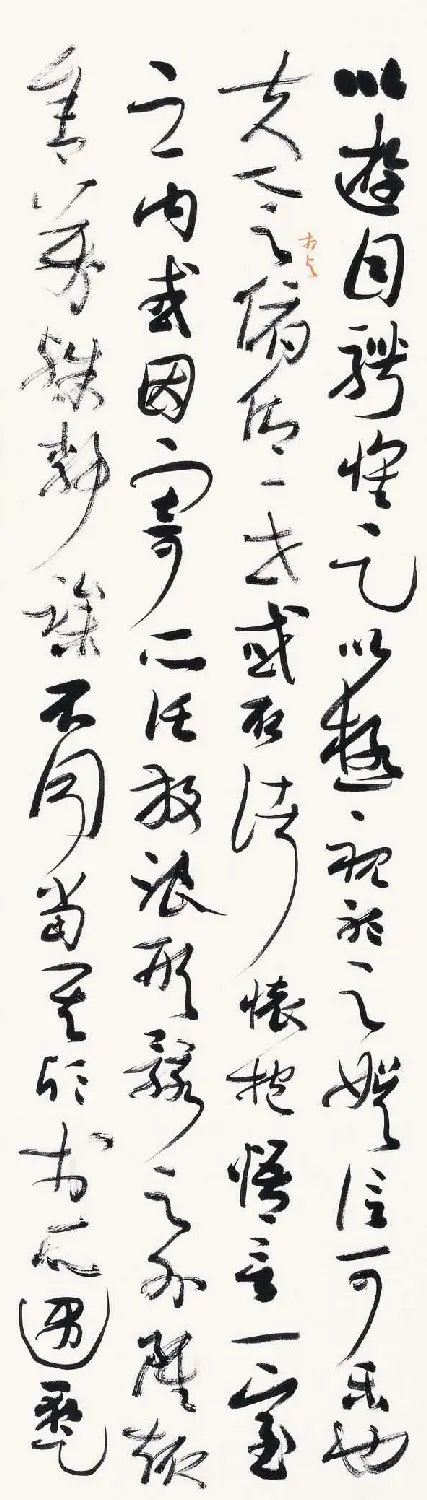 以遊目騁懷足以極視聽之娛信可樂也
夫人之相與俯仰一世或取諸懷抱悟言一室
之內或因寄所託放浪形骸之外雖趣
舍萬殊靜躁不同當其欣於所遇暫